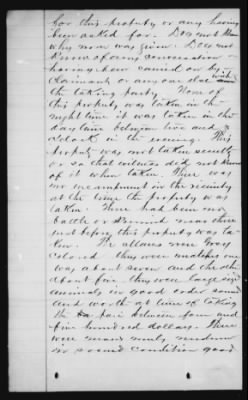 for this property or any having
been asked for. Does not know
why none was given. Does not
know of any concession
having been caused or by
claimant or any one else with
the taking party. None of
this property was taken in the
night time it was taken in the
daytime between five and
o'clock in the evening. This
property was not taken secretly
or so that witness did not know
of it when taken. There was
no encampment in the vicinity
at the time the property was
taken. There had been no
battle or skirmish near there
just before this property was ta-
ken. The mares were Gray
colored they were matches one
was about seven and the other
about five they were large size
animals in good order sound
and worth at time of taking
the pair between four and
five hundred dollars. These
were mares
in sound condition good